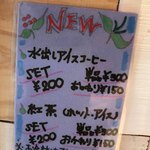 NEW
水出しアイスコーヒー
SET 単品¥300
¥200 おかわり¥150
紅茶(ホット・アイス)
SET 単品¥300
¥200 おかわり¥150